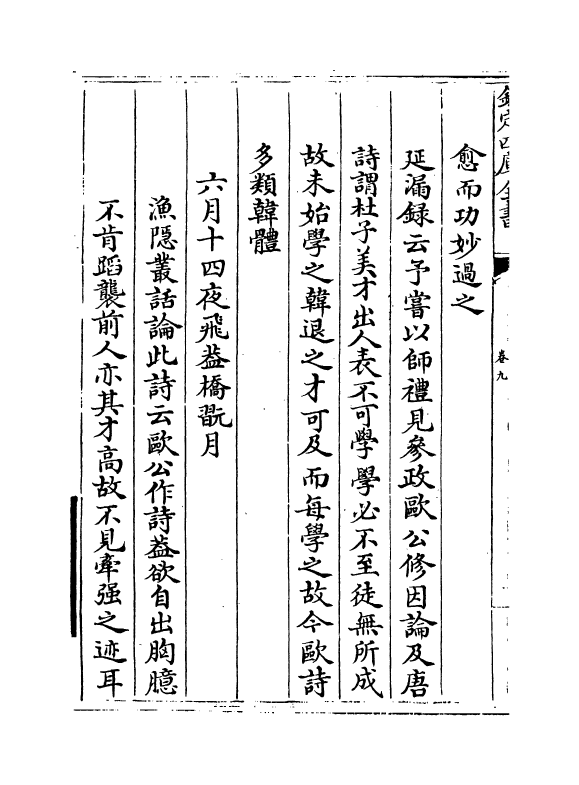 欽定四庫全書
卷九
愈而功妙過之
延漏録云予嘗以師禮見參政歐公修因論及唐
詩謂杜子美才出人表不可學學必不至徒無所成
故未始學之韓退之才可及而每學之故今歐詩
多類韓體
六月十四夜飛葢橋翫月
漁隱叢話論此詩云歐公作詩葢欲自出胸臆
不肯蹈襲前人亦其才高故不見牽强之迹耳